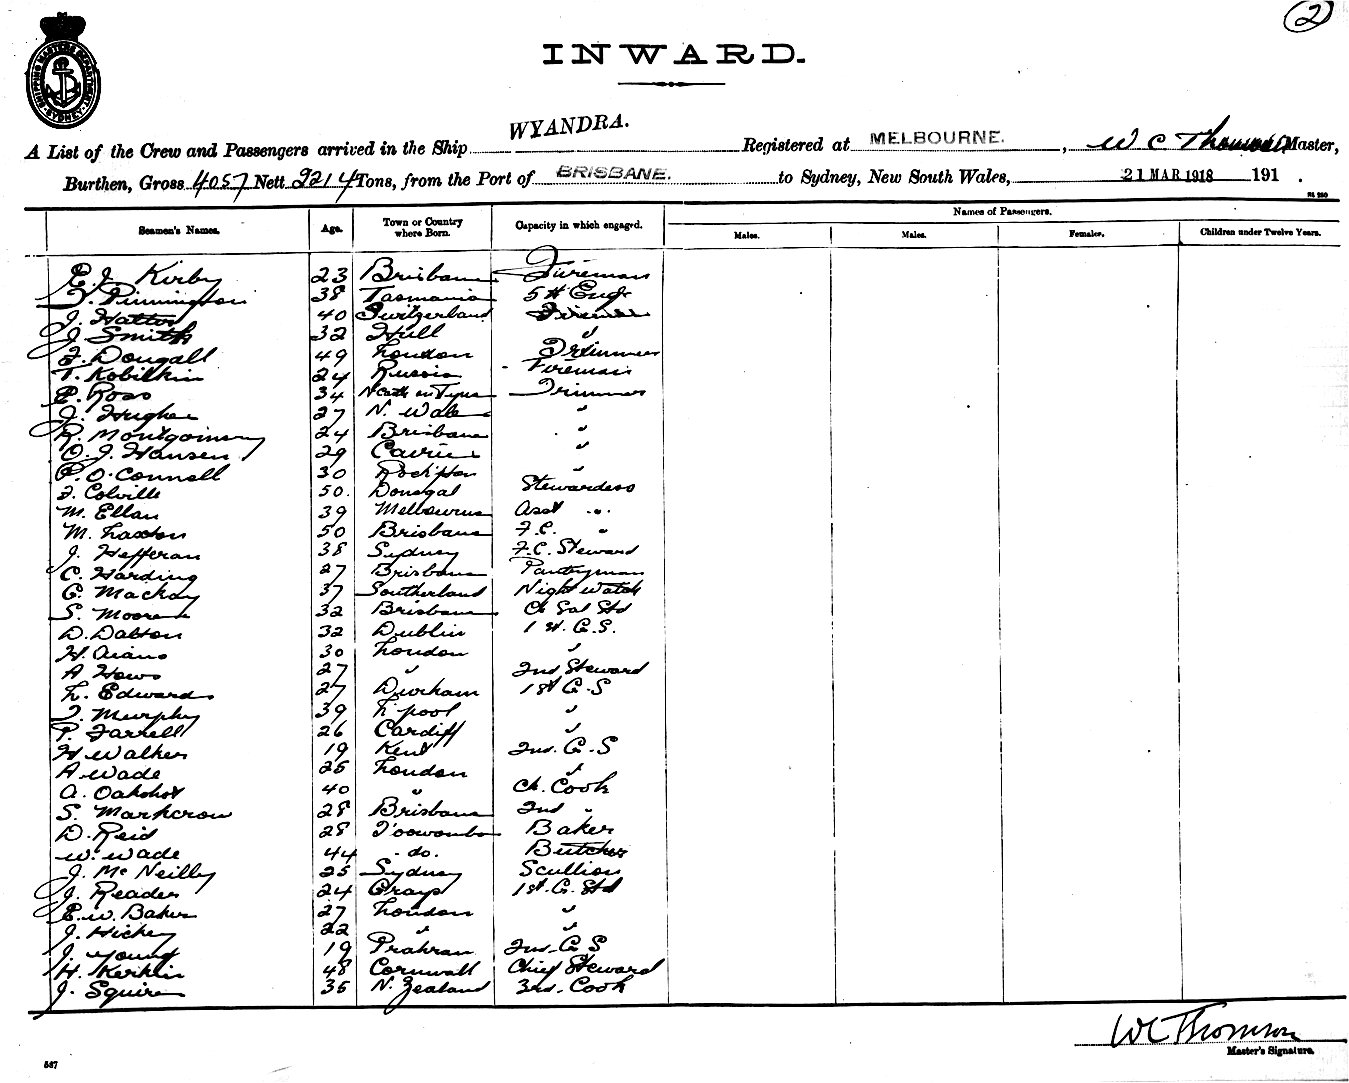 2
SHIPPING MASTERS DEPARTMENT SYDNEY
INWARD.
A List of the Crew and Passengers arrived in the Ship WYANDRA. Registered at MELBOURNE. , W C Thomson Master,
Burthen, Gross 4057 Nett 2214 Tons, from the Port of BRISBANE. to Sydney, New South Wales, 21 MAR 1918 191 .
Names of Passengers.
Seamen's Names. Age. Town or Country where Born. Capacity in which engaged. Males. Males. Females. Children under Twelve Years.
E. J. Kirby 23 Brisbane Fireman
Pinnington 38 Tasmania 5th Engr
J. Hatter 40 Switzerland Fireman
J. Smith 32 Hull "
J. Dougall 49 London Trimmer
T. Kobilkin 24 Russia Fireman
P. Ross 34 Trimmer
J. Hughes 27 N. Wales "
R. Montgomery 24 Brisbane "
O. J. Hansen 29 "
P. O'Connell 30 "
J. Colville 50. Donegal Stewardess
M. Ellan 39 Melbourne Asst "
M. Laxton 50 Brisbane F.C. "
J. Hefferan 38 Sydney F.C. Steward
C. Harding 27 Brisbane Pantryman
G. Mackay 37 Southerland Night Watch
S. Moore 32 Brisbane Ch Sal Std
D. Dalton 32 Dublin 1st. G.S.
H. 30 London "
A Hows 27 " 2nd Steward
L. Edwards 27 Durham 1st G.S
J. Murphy 39 L'pool "
P. Farrell 26 Cardiff "
H Walker 19 Kent 2nd. G.S
A Wade 25 London "
A. Oakshot 40 " Ch. Cook
S. Markcrow 28 Brisbane 2nd "
D. Reid 28 Toowomba Baker
W. Wade 44 do. Butcher
J. McNeilly 25 Sydney Scullion
J. Reader 24 Grays 1st. G. Std
E. W. Baker 27 London "
J. Hickey 22 " "
J. Young 19 Prahran 2nd. G S
H. Kerkin 48 Cornwall Chief Steward
J. Squire 35 N. Zealand 3rd. Cook
WC Thomson
Master's Signature.